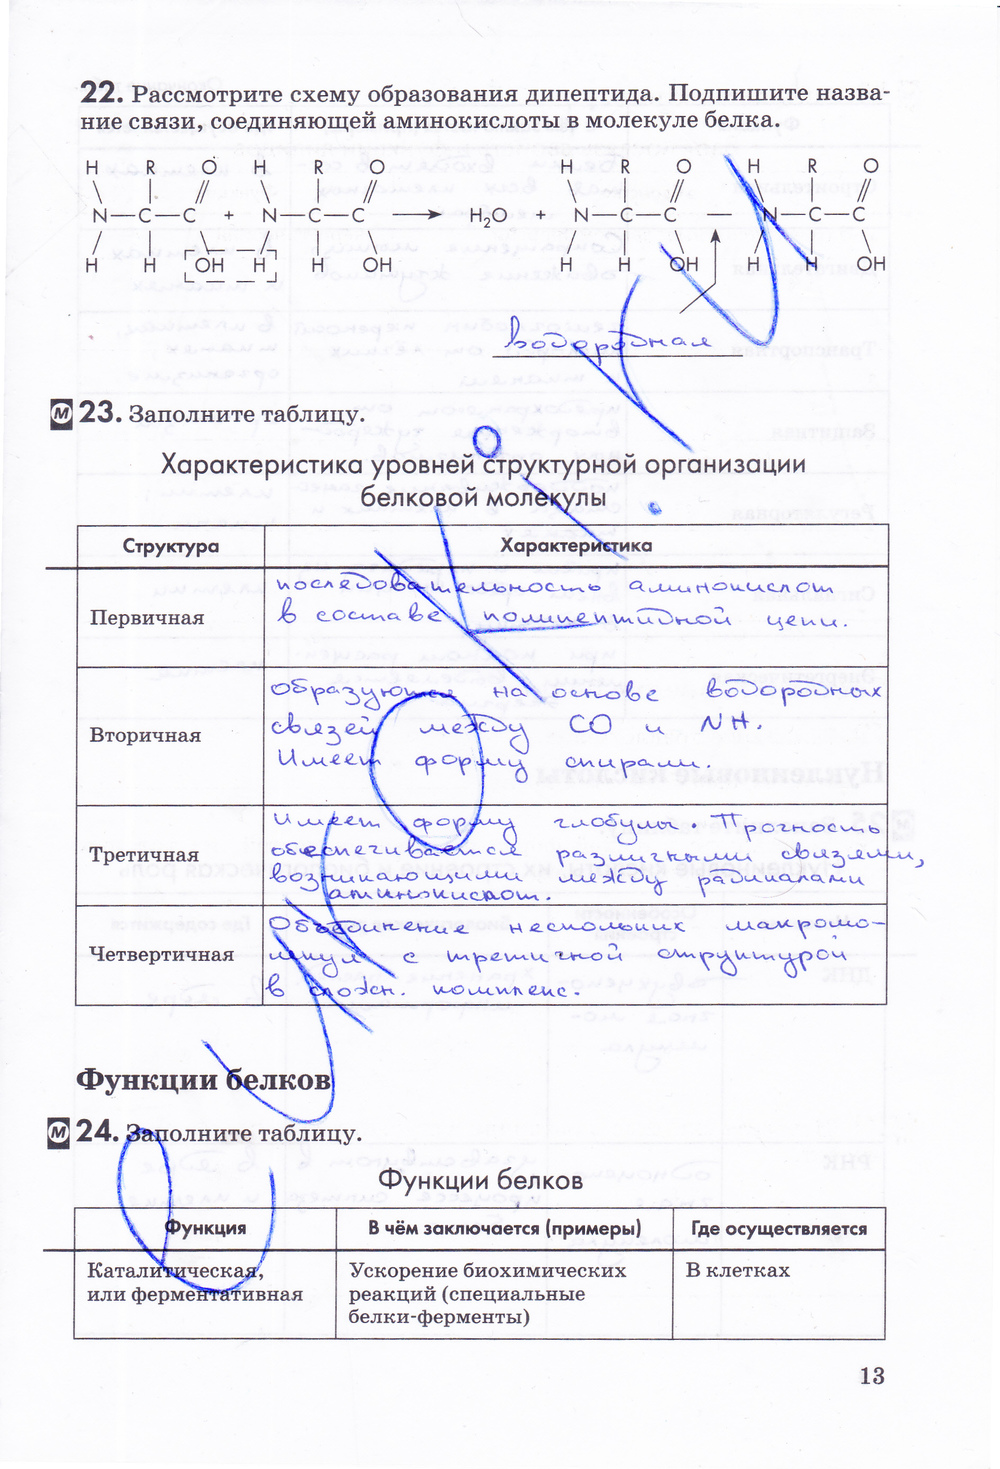 22. Рассмотрите схему образования дипептида. Подпишите назва-
ние связи, соединяющей аминокислоты в молекуле белка.
H R O H R O H R O H R O
N—C—C + N—C—C → H₂O + N—C—C — N—C—C
H H OH H H OH H H OH H H OH
водородная
М 23. Заполните таблицу.
Характеристика уровней структурной организации
белковой молекулы
Структура Характеристика
Первичная
последовательность аминокислот
в составе полипептидной цепи.
Вторичная
образуются на основе водородных
связей между CO и NH.
Имеет форму спирали.
Третичная
Имеет форму глобулы. Прочность
обеспечивается различными связями,
возникающими между радикалами
аминокислот.
Четвертичная
Объединение нескольких макромо-
лекул с третичной структурой
в сложн. комплекс.
Функции белков
М 24. Заполните таблицу.
Функции белков
Функция В чём заключается (примеры) Где осуществляется
Каталитическая,
или ферментативная
Ускорение биохимических
реакций (специальные
белки-ферменты)
В клетках
13